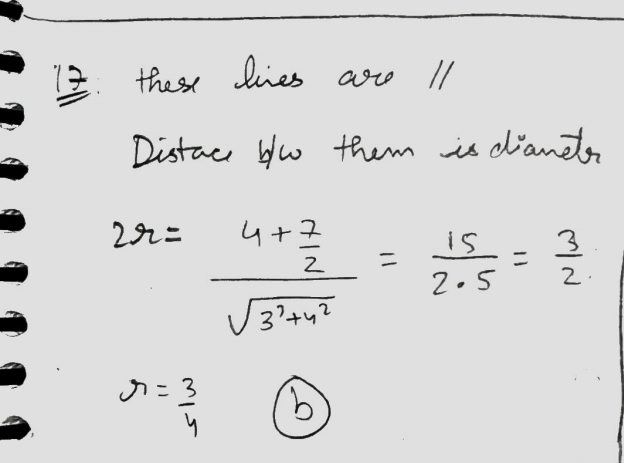 17. these lines are //
Distace b/w them is diametr
2r = (4 + 7/2) / √(3² + 4²) = 15 / (2·5) = 3/2.
r = 3/4 (b)